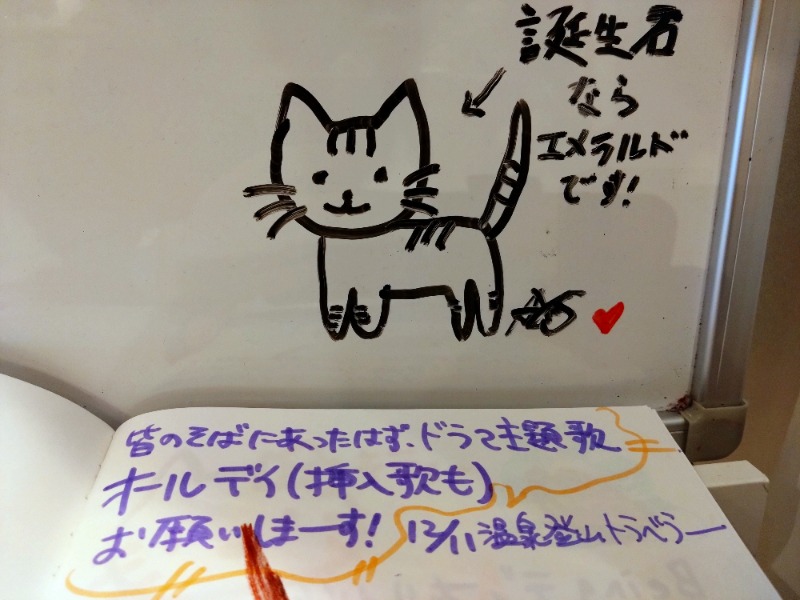 誕生石
なら
エメラルド
です!
皆のそばにあったはず、ドラマ主題歌
オールデイ(挿入歌も)
お願いしまーす! 12/11 温泉登山トラベラー